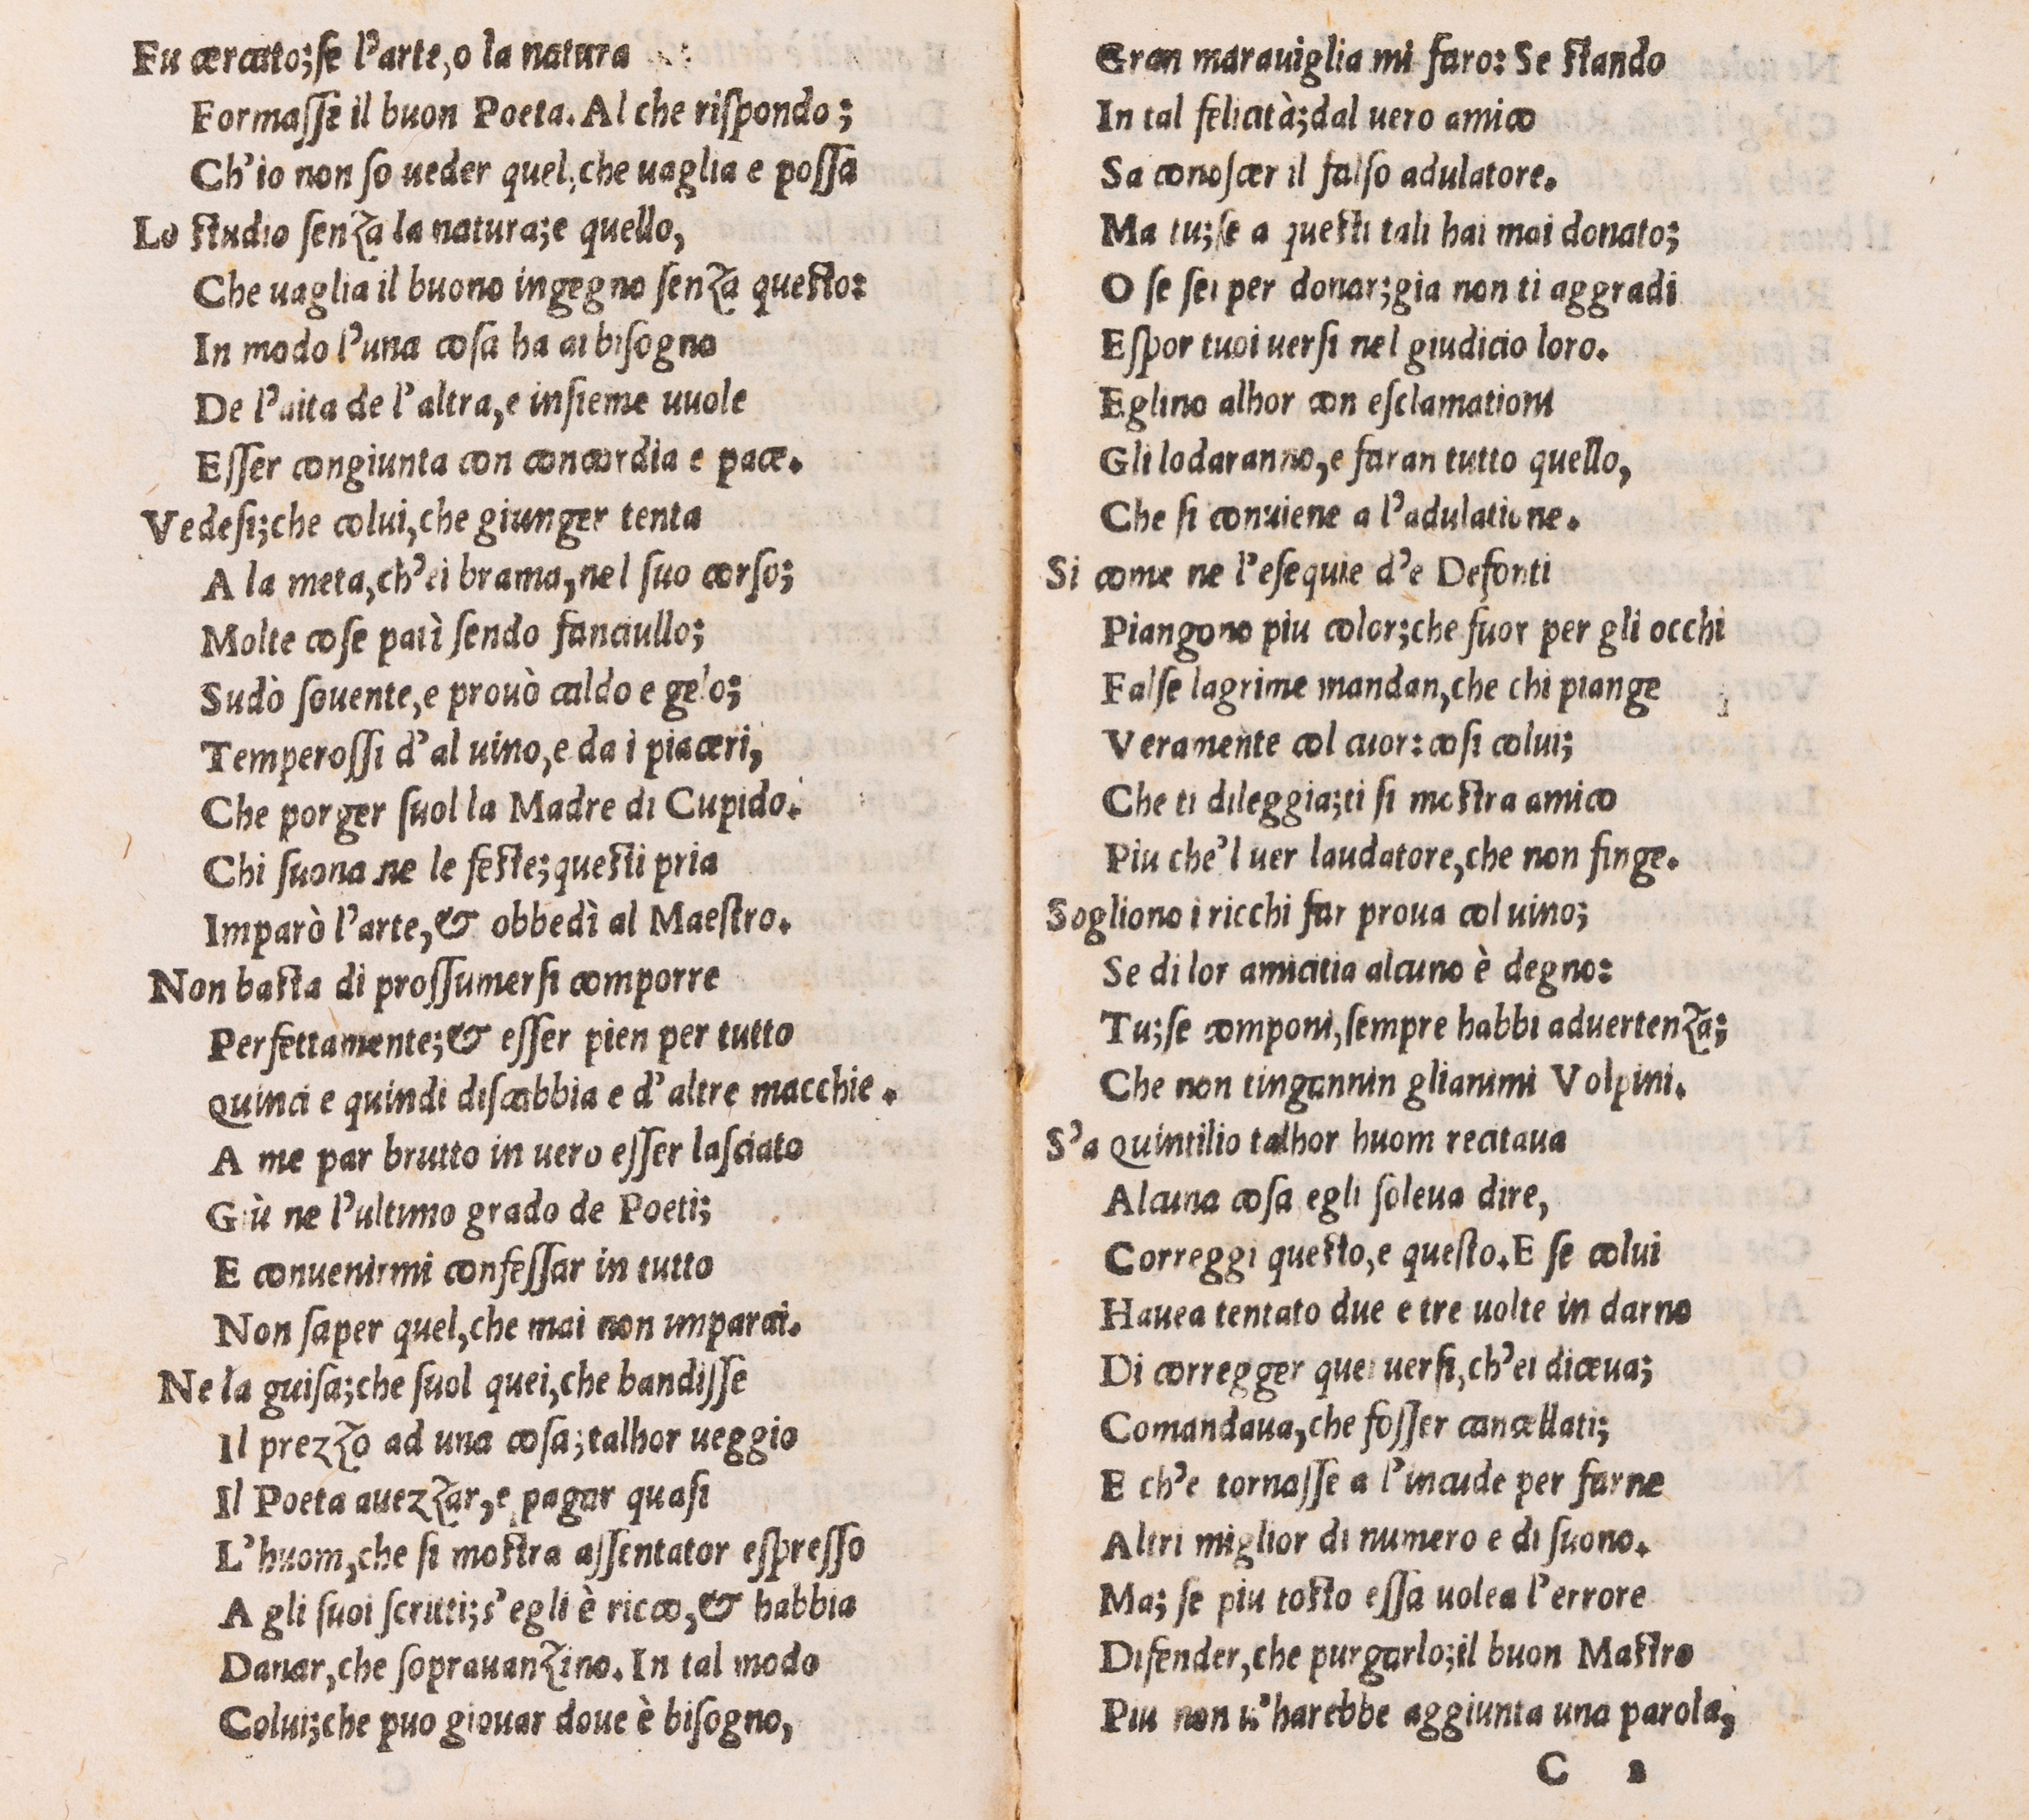 Fu cercato;ſe l'arte,o la natura
Formaſſe il buon Poeta.Al che riſpondo;
Ch'io non ſo ueder quel,che uaglia e poſſa
Lo ſtudio ſenza la natura;e quello,
Che uaglia il buono ingegno ſenza queſto:
In modo l'una coſa ha di biſogno
De l'aita de l'altra,e inſieme uuole
Eſſer congiunta con concordia e pace.
Vedeſi;che colui,che giunger tenta
A la meta,ch'ei brama,nel ſuo corſo;
Molte coſe patì ſendo fanciullo;
Sudò ſouente,e prouò caldo e gelo;
Temperoſſi d'al uino,e da i piaceri,
Che porger ſuol la Madre di Cupido.
Chi ſuona ne le feſte;queſti pria
Imparò l'arte,& obbedì al Maeſtro.
Non baſta di proſſumerſi comporre
Perfettamente;& eſſer pien per tutto
Quinci e quindi di ſcabbia e d'altre macchie.
A me par brutto in uero eſſer laſciato
Giù ne l'ultimo grado de Poeti;
E conuenirmi confeſſar in tutto
Non ſaper quel,che mai non imparai.
Ne la guiſa;che ſuol quei,che bandiſſe
Il prezzo ad una coſa;talhor ueggio
Il Poeta auezzar,e pagar quaſi
L'huom,che ſi moſtra aſſentator eſpreſſo
A gli ſuoi ſcritti;s'egli è ricco,& habbia
Danar,che ſoprauanzino.In tal modo
Colui;che puo giouar doue è biſogno,
Gran marauiglia mi faro: Se ſtando
In tal felicità;dal uero amico
Sa conoſcer il falſo adulatore.
Ma tu;ſe a queſti tali hai mai donato;
O ſe ſei per donar;gia non ti aggradi
Eſpor tuoi uerſi nel giudicio loro.
Eglino alhor con eſclamationi
Gli lodaranno,e faran tutto quello,
Che ſi conuiene a l'adulatione.
Si come ne l'eſequie d'e Defonti
Piangono piu color;che fuor per gli occhi
Falſe lagrime mandan,che chi piange
Veramente col cuor:coſi colui;
Che ti dileggia;ti ſi moſtra amico
Piu che'l uer laudatore,che non finge.
Sogliono i ricchi far proua col uino;
Se di lor amicitia alcuno è degno:
Tu;ſe componi,ſempre habbi aduertenza;
Che non tingannin glianimi Volpini.
S'a Quintilio talhor huom recitaua
Alcuna coſa egli ſoleua dire,
Correggi queſto,e queſto.E ſe colui
Hauea tentato due e tre uolte in darno
Di corregger quei uerſi,ch'ei diceua;
Comandaua,che foſſer cancellati;
E ch'e tornaſſe a l'incude per farne
Altri miglior di numero e di ſuono.
Ma; ſe piu toſto eſſa uolea l'errore
Difender,che purgarlo;il buon Maſtro
Piu non u'harebbe aggiunta una parola,
C 2